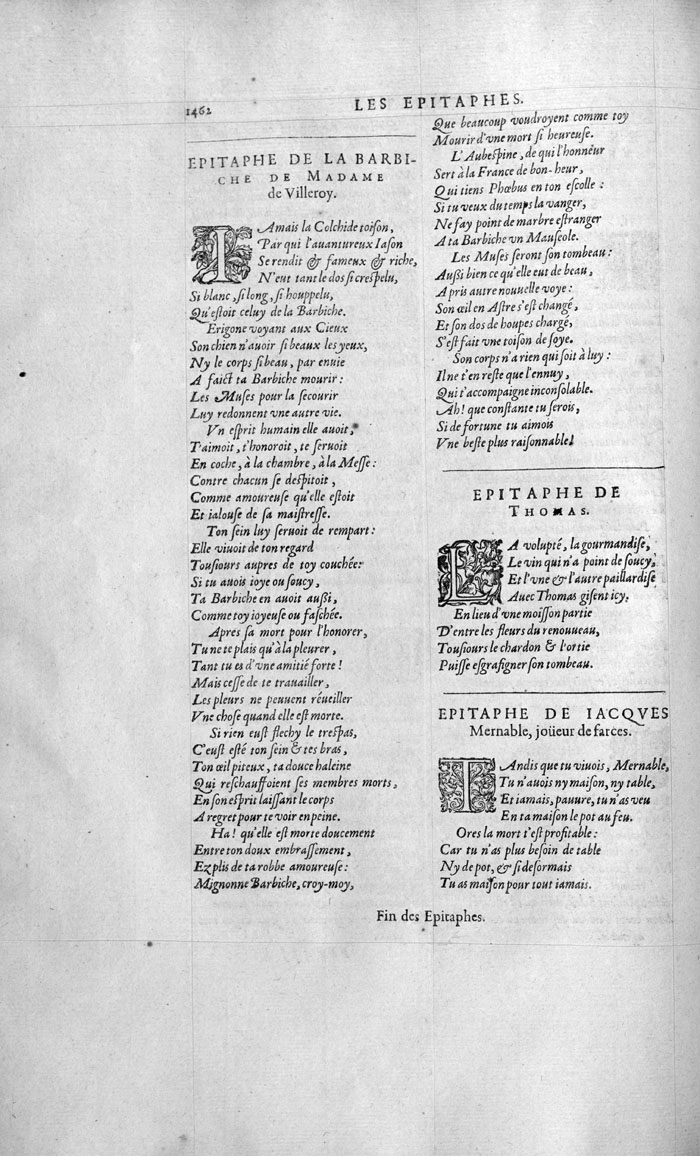 1462
LES EPITAPHES.
EPITAPHE DE LA BARBI-
CHE DE MADAME
de Villeroy.
IAmais la Colchide toiſon,
Par qui l'auantureux Iaſon
Se rendit & fameux & riche,
N'eut tant le dos ſi creſpelu,
Si blanc, ſi long, ſi houppelu,
Qu'eſtoit celuy de la Barbiche.
Erigone voyant aux Cieux
Son chien n'auoir ſi beaux les yeux,
Ny le corps ſi beau, par enuie
A faict ta Barbiche mourir:
Les Muſes pour la ſecourir
Luy redonnent vne autre vie.
Vn eſprit humain elle auoit,
T'aimoit, t'honoroit, te ſeruoit
En coche, à la chambre, à la Meſſe:
Contre chacun ſe deſpitoit,
Comme amoureuſe qu'elle eſtoit
Et ialouſe de ſa maiſtreſſe.
Ton ſein luy ſeruoit de rempart:
Elle viuoit de ton regard
Touſiours aupres de toy couchée:
Si tu auois ioye ou ſoucy,
Ta Barbiche en auoit auſſi,
Comme toy ioyeuſe ou faſchée.
Apres ſa mort pour l'honorer,
Tu ne te plais qu'à la pleurer,
Tant tu es d'vne amitié forte!
Mais ceſſe de te trauailler,
Les pleurs ne peuuent réueiller
Vne choſe quand elle eſt morte.
Si rien euſt flechy le treſpas,
C'euſt eſté ton ſein & tes bras,
Ton œil piteux, ta douce haleine
Qui reſchauffoient ſes membres morts,
En ſon eſprit laiſſant le corps
A regret pour te voir en peine.
Ha! qu'elle eſt morte doucement
Entre ton doux embraſſement,
Ez plis de ta robbe amoureuſe:
Mignonne Barbiche, croy-moy,
Que beaucoup voudroyent comme toy
Mourir d'vne mort ſi heureuſe.
L'Aubeſpine, de qui l'honneur
Sert à la France de bon-heur,
Qui tiens Phœbus en ton eſcolle:
Si tu veux du temps la vanger,
Ne fay point de marbre eſtranger
A ta Barbiche vn Mauſole.
Les Muſes ſeront ſon tombeau:
Auſſi bien ce qu'elle eut de beau,
A pris autre nouuelle voye:
Son œil en Aſtre s'eſt changé,
Et ſon dos de houpes chargé,
S'eſt fait vne toiſon de ſoye.
Son corps n'a rien qui ſoit à luy:
Il ne t'en reſte que l'ennuy,
Qui t'accompaigne inconſolable.
Ah! que conſtante tu ſerois,
Si de fortune tu aimois
Vne beſte plus raiſonnable!
EPITAPHE DE
THOMAS.
LA volupté, la gourmandiſe,
Le vin qui n'a point de ſoucy,
Et l'vne & l'autre paillardiſe
Auec Thomas giſent icy.
En lieu d'vne moiſſon partie
D'entre les fleurs du renouueau,
Touſiours le chardon & l'ortie
Puiſſe eſgrafigner ſon tombeau.
EPITAPHE DE IACQVES
Mernable, joüeur de farces.
TAndis que tu viuois, Mernable,
Tu n'auois ny maiſon, ny table,
Et iamais, pauure, tu n'as veu
En ta maiſon le pot au feu.
Ores la mort t'eſt profitable:
Car tu n'as plus beſoin de table
Ny de pot, & ſi deſormais
Tu as maiſon pour tout iamais.
Fin des Epitaphes.